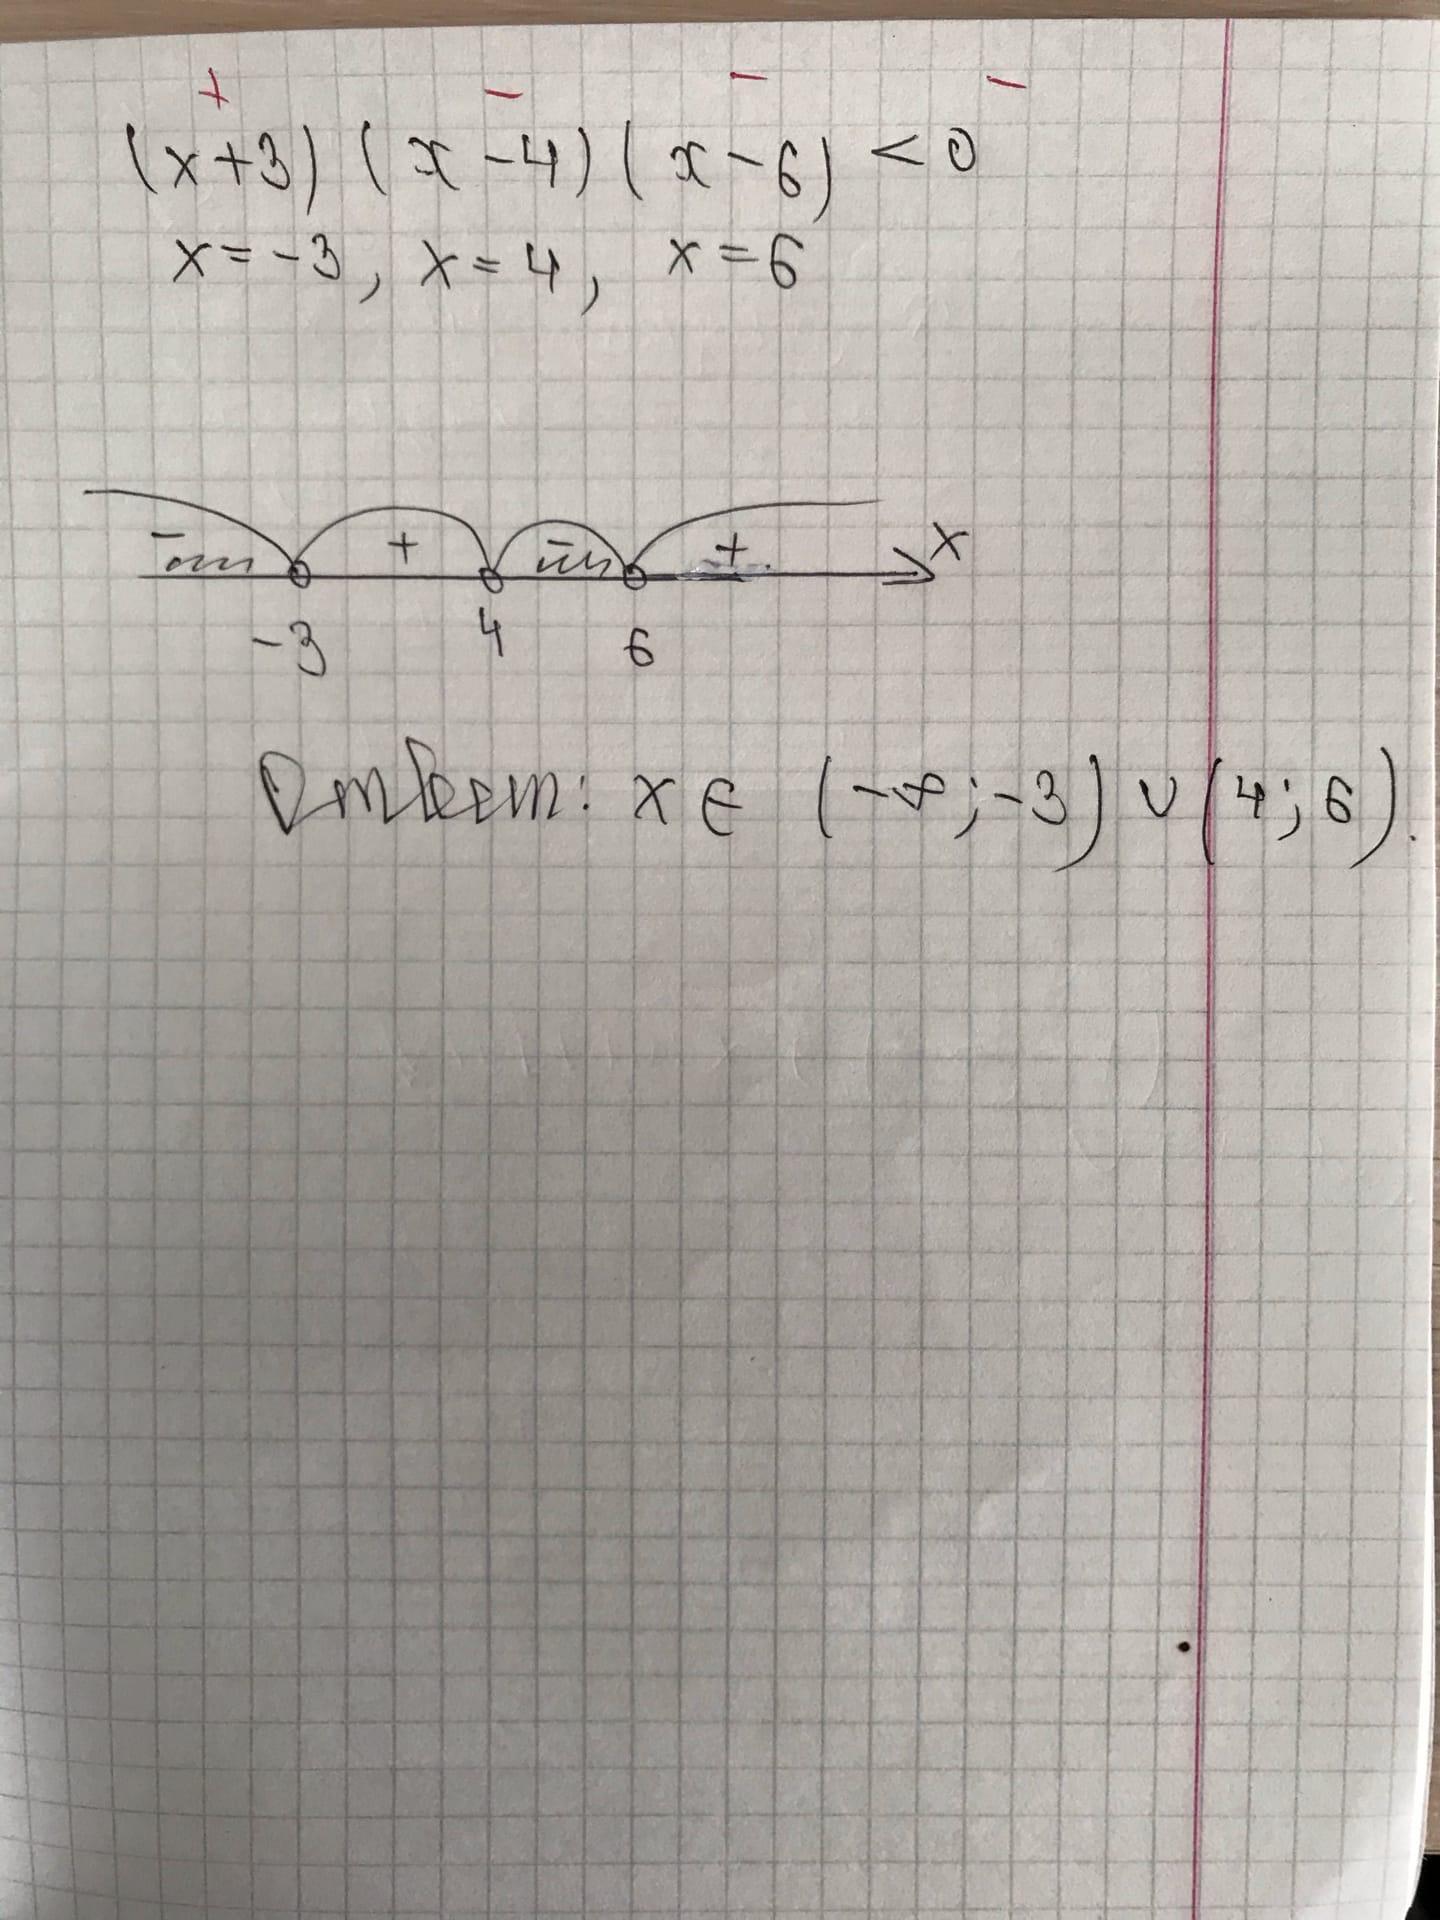 + - - -
(x+3)(x-4)(x-6)<0
x=-3, x=4, x=6
- + - + x
-3 4 6
Ответ: x∈ (-∞;-3)∪(4;6).